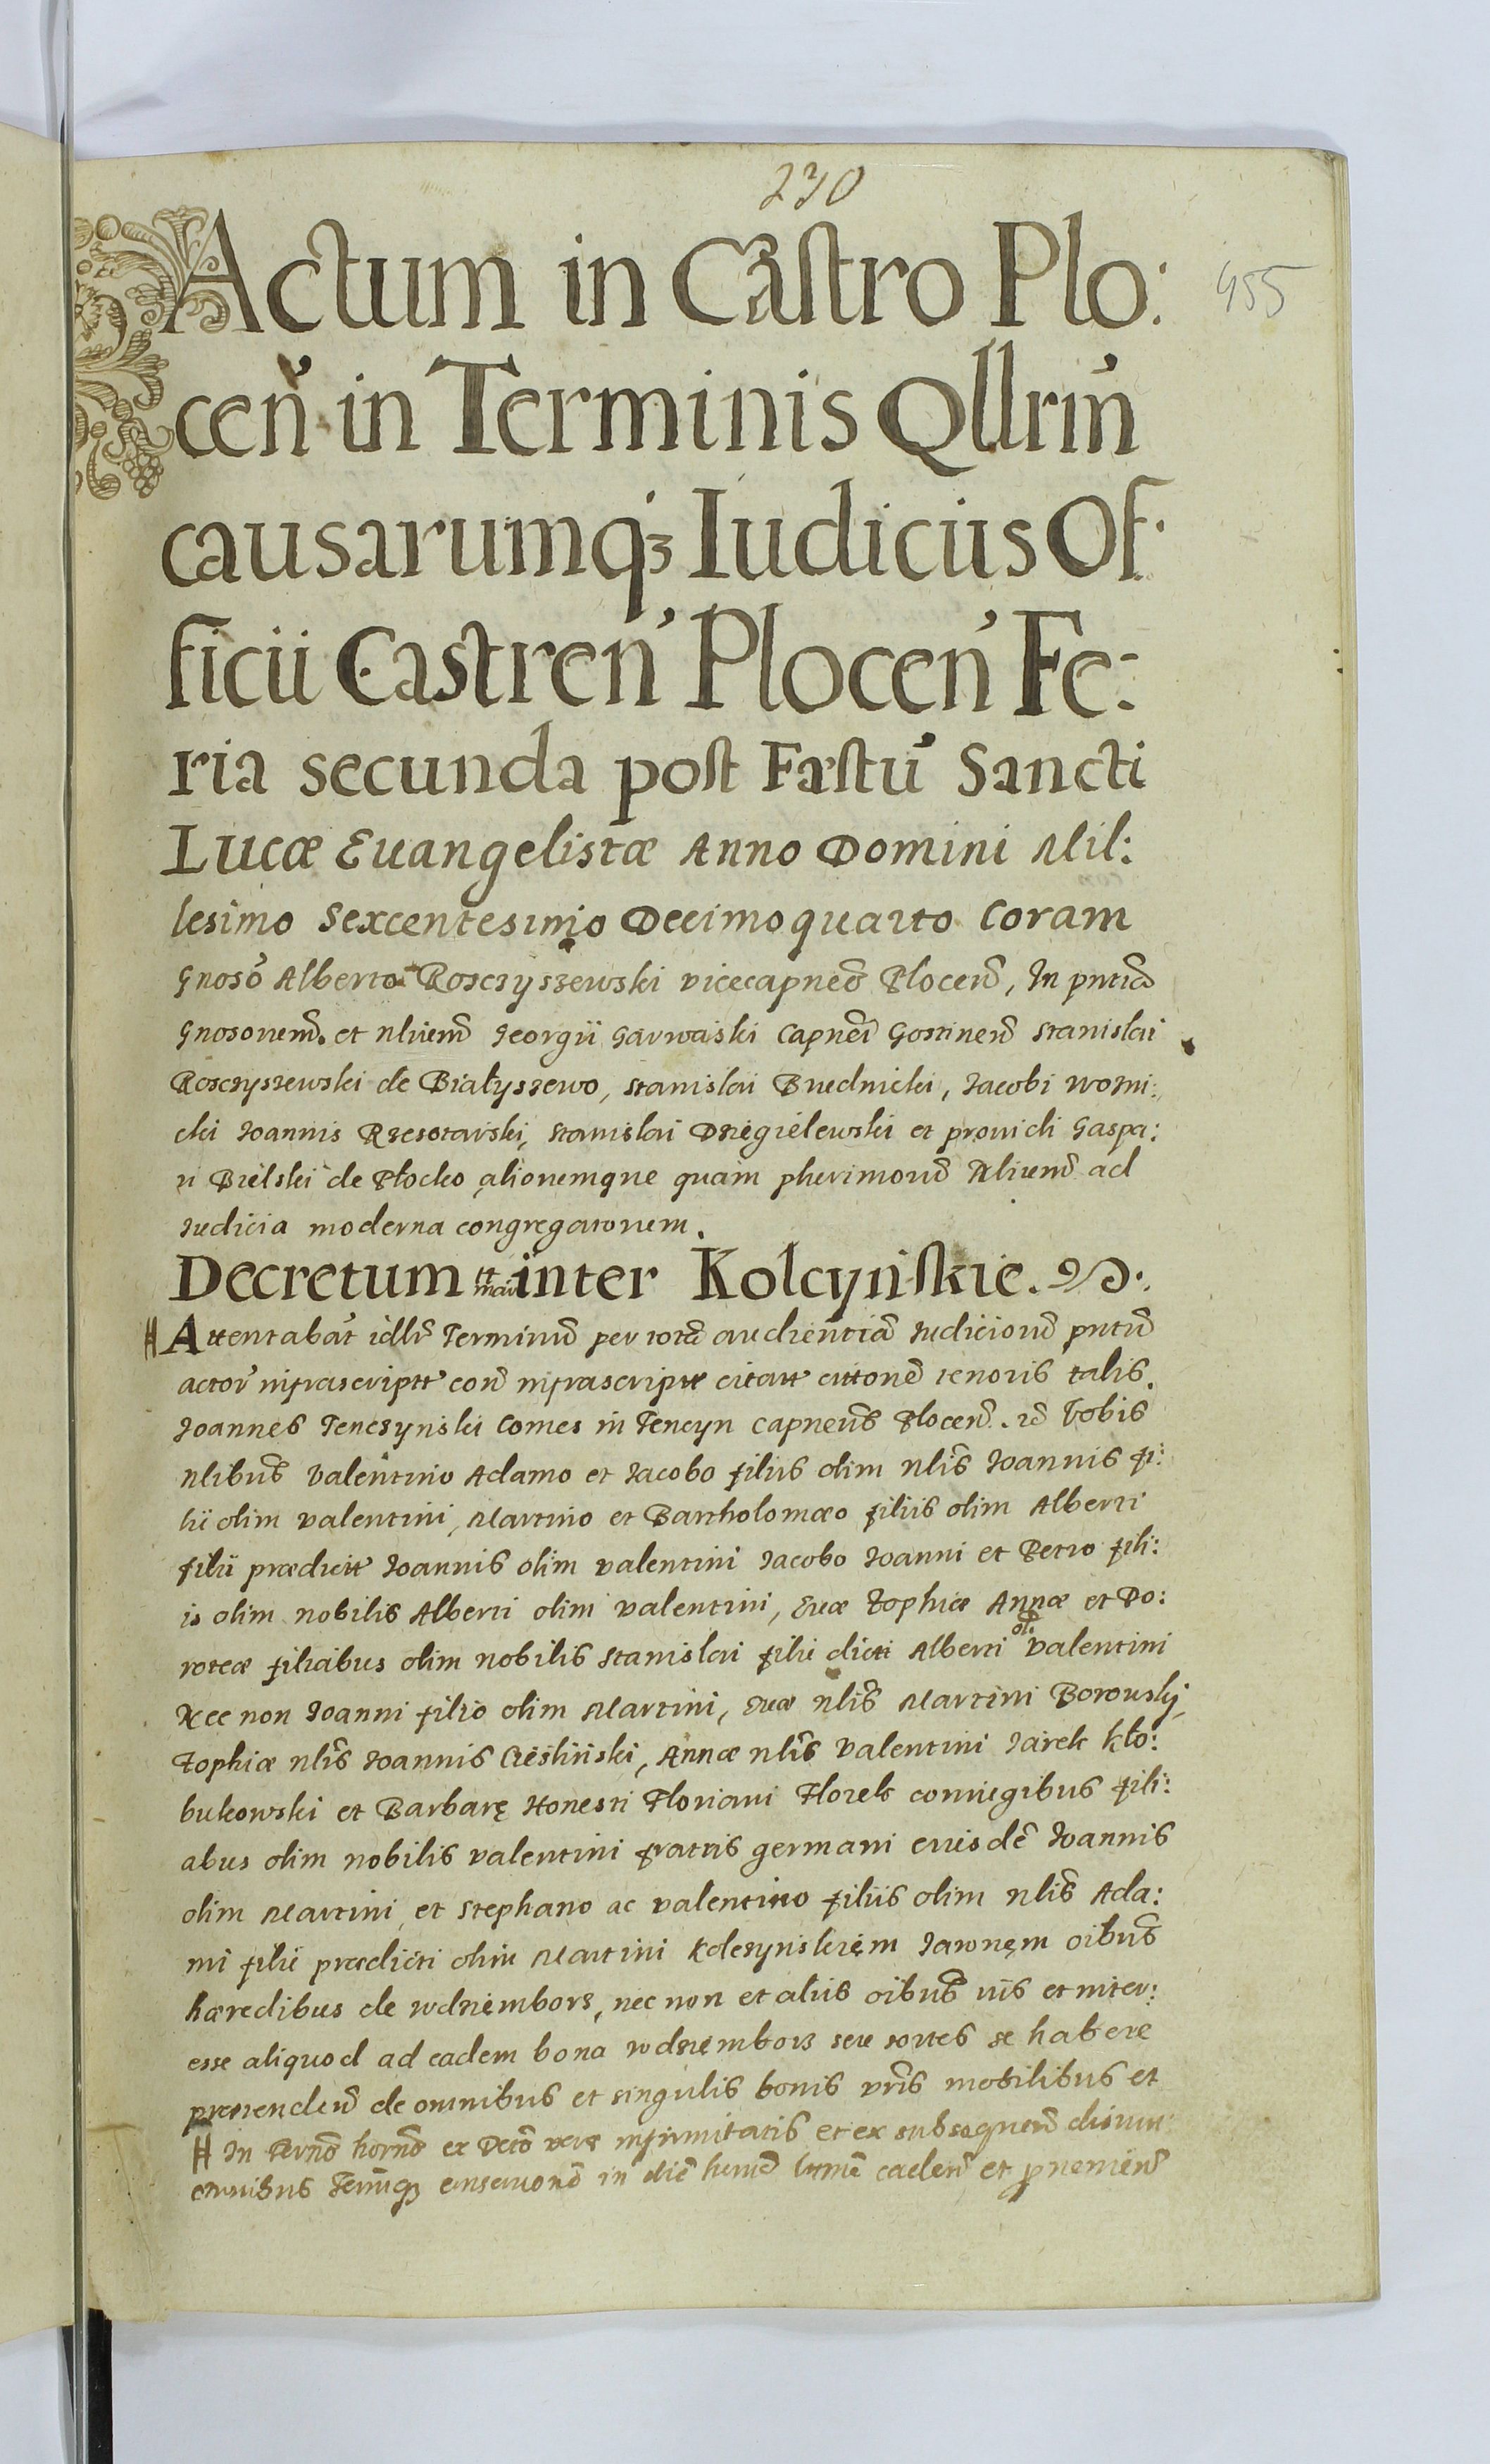 230
455
Actum in Castro Plo:
cen̄ in Terminis Qllrm̄
causarumqꝫ Iudiciis Of:
ficii Castren̄ Plocen̄ Fe:
ria secunda post Fæstū Sancti
Lucæ Euangelistæ Anno Domini Mil:
lesimo Sexcentesimo Decimoquarto Coram
Gnosō Alberto Rosczyszewski vicecapneō Plocen̄, In pntiā
Gnosorum̄ et nlium̄ Georgii Garwaski Capnei Gostinen̄ Stanislai
Rosczyszewski de Białyszewo, Stanislai Brudnicki, Jacobi Wozni:
cki Joannis Rzeszotarski, Stanislai Dziegielewski et prouidi Gaspa:
ri Bielski de Płocko aliorumque quam plurimorū Nlium̄ ad
Judicia moderna congregatorum.
Decretum inter Kolcyńskie.
Attentabāt idllr̄ Terminū per totā audientiā Judiciorū pntiū
actor̄ infrascriptt con̄ infrascriptt citatt cittonē tenoris talis.
Joannes Tenczynski Comes in Tencyn Capneūs Plocen̄. Vobis
nlibūs Valentino Adamo et Jacobo filiis olim nlis̄ Joannis fi:
lii olim Valentini, Martino et Bartholomæo filiis olim Alberti
filii prædictt Joannis olim Valentini Jacobo Joanni et Petro fili:
is olim nobilis Alberti olim Valentini, Euæ Zophiæ Annæ et Do:
roteæ filiabus olim nobilis Stanislai filii dicti Alberti ol. Valentini
Nec non Joanni filio olim Martini, Euæ nlis̄ Martini Borouskj,
Zophiæ nlis̄ Joannis Cieśliński, Annæ nlis̄ Valentini Jarek kło:
bukowski et Barbarę Honesti Floriani Florek coniugibus fili:
abus olim nobilis Valentini fratris germani eiusdē Joannis
olim Martini, et Stephano ac Valentino filiis olim nlis̄ Ada:
mi filii prædicti olim Martini Kolczynskięm Jawnęm oibūs
hæredibus de wdziemborz, nec non et aliis oibūs uis̄ et inter:
esse aliquod ad eadem bona wdziemborz seu sortes se habere
prætenden̄ de omnibus et singulis bonis vris̄ mobilibus et
In Termō hornō ex Decrō veræ infirmitatis et ex subsequen̄
omnibus Termīqꝫ in diē caden̄ et proueniēn̄